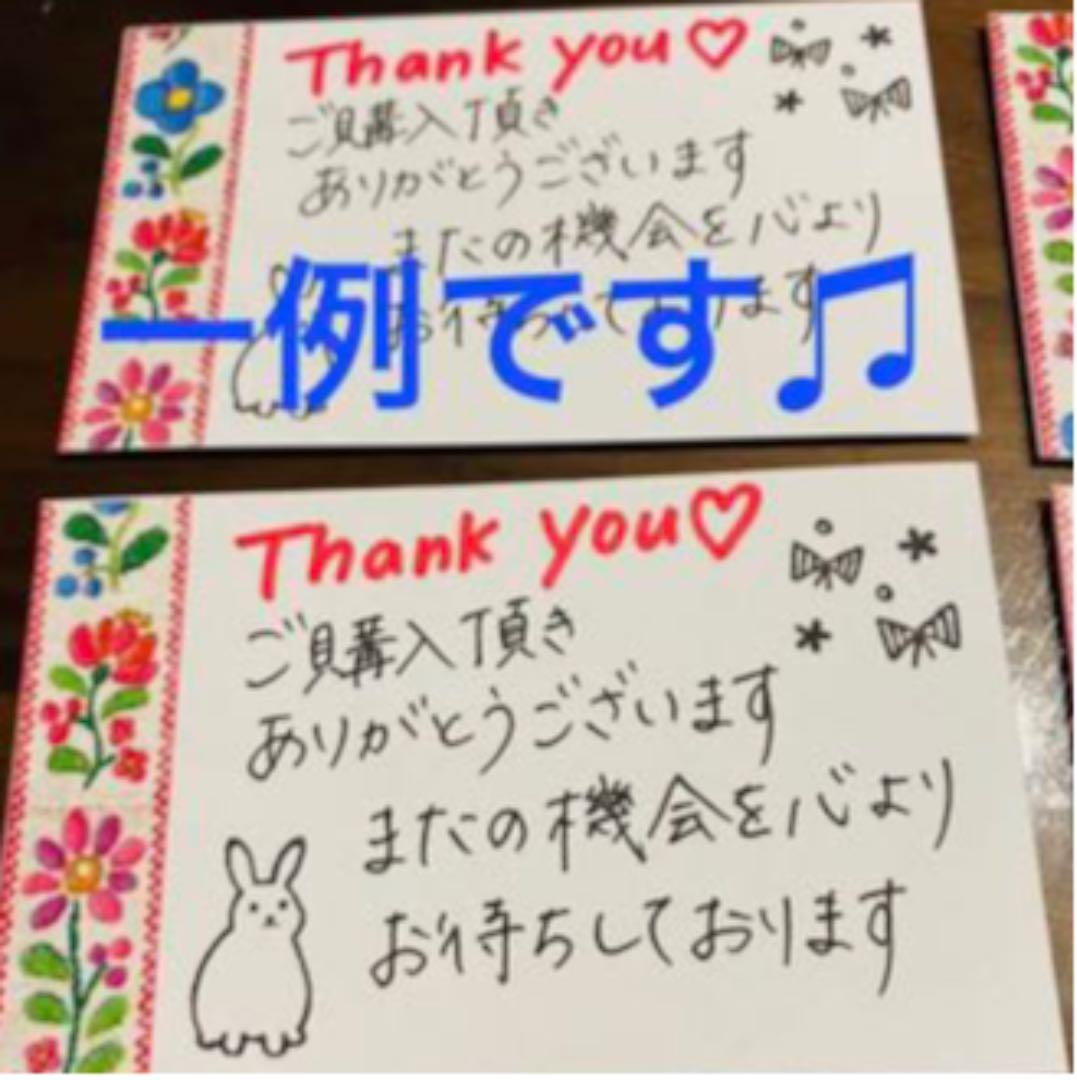 Thank you♡
ご購入頂き
ありがとうございます
またの機会を心より
お待ちしております
一例です♫
Thank you♡
ご購入頂き
ありがとうございます
またの機会を心より
お待ちしております